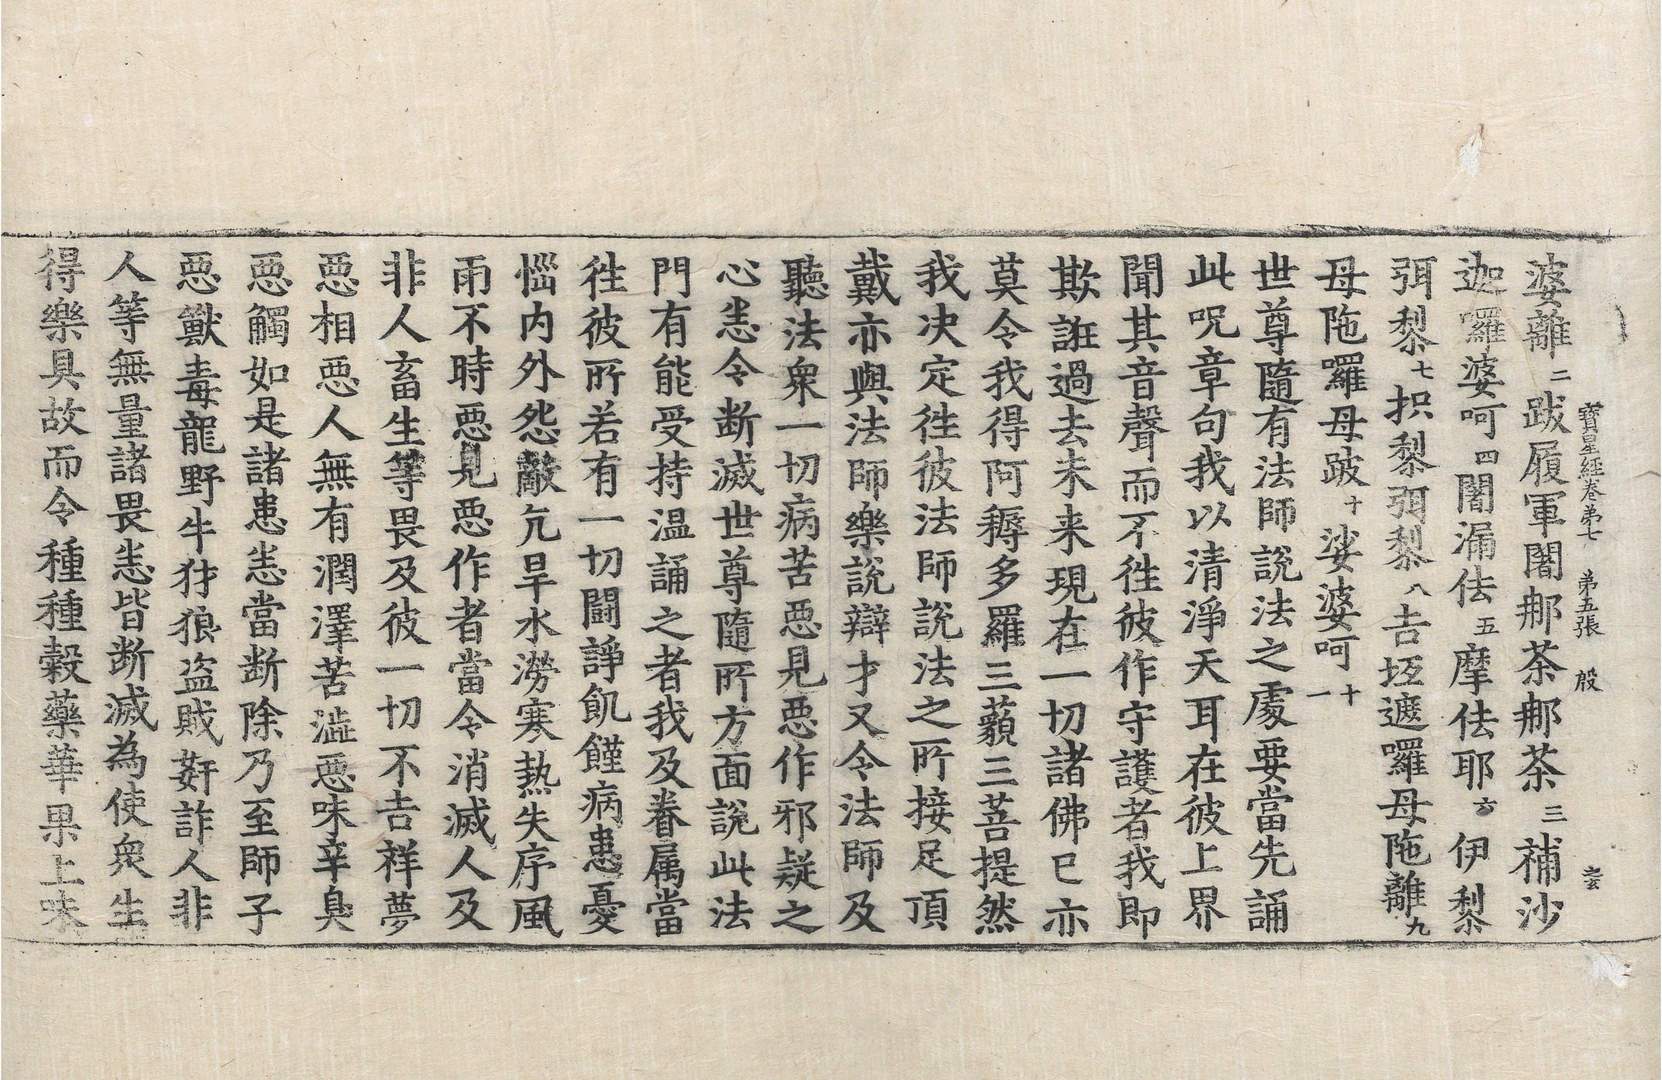 寶星經卷第七 第五張 殷
婆離二跋履軍闍郍荼郍荼三補沙
迦囉婆呵四闍漏佉五摩佉耶六伊黎
弭黎七抧黎弭黎八吉坘遮囉母陁離九
母陁囉母跛十娑婆呵十一
世尊隨有法師說法之處要當先誦
此呪章句我以清淨天耳在彼上界
聞其音聲而不徃彼作守護者我即
欺誑過去未来現在一切諸佛已亦
莫令我得阿耨多羅三藐三菩提然
我决定徃彼法師說法之所接足頂
戴亦與法師樂說辯才又令法師及
聽法衆一切病苦惡見惡作邪疑之
心恚令断滅世尊隨所方面說此法
門有能受持温誦之者我及眷属當
徃彼所若有一切鬪諍飢饉病患憂
惱内外怨敵亢旱水澇寒熱失序風
雨不時惡見惡作者當令消滅人及
非人畜生等畏及彼一切不吉祥夢
惡相惡人無有潤澤苦澁惡味辛臭
惡觸如是諸患恚當断除乃至師子
惡獸毒龍野牛犲狼盗賊姧詐人非
人等無量諸畏恚皆断滅為使衆生
得樂具故而令種種穀藥華果上味